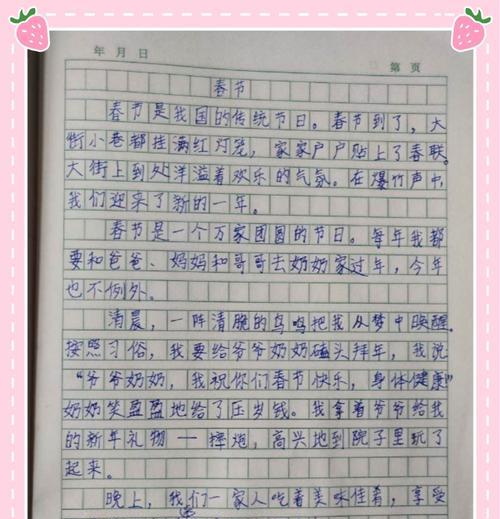 年 月 日
第 页
春节
春节是我国的传统节日。春节到了，大
街小巷都挂满红灯笼，家家户户贴上了春联。
大街上到处洋溢着欢乐的气氛。在爆竹声中，
我们迎来了新的一年。
春节是一个万家团圆的节日。每年我都
要和爸爸、妈妈和哥哥去奶奶家过年，今年
也不例外。
清晨，一阵清脆的鸟鸣把我从梦中唤醒。
按照习俗，我要给爷爷奶奶磕头拜年，我说
“爷爷奶奶，我祝你们春节快乐，身体健康”
奶奶笑盈盈地给了压岁钱。我拿着爷爷给我
的新年礼物——摔炮，高兴地到院子里玩了
起来。
晚上，我们一家人吃着美味佳肴，享受